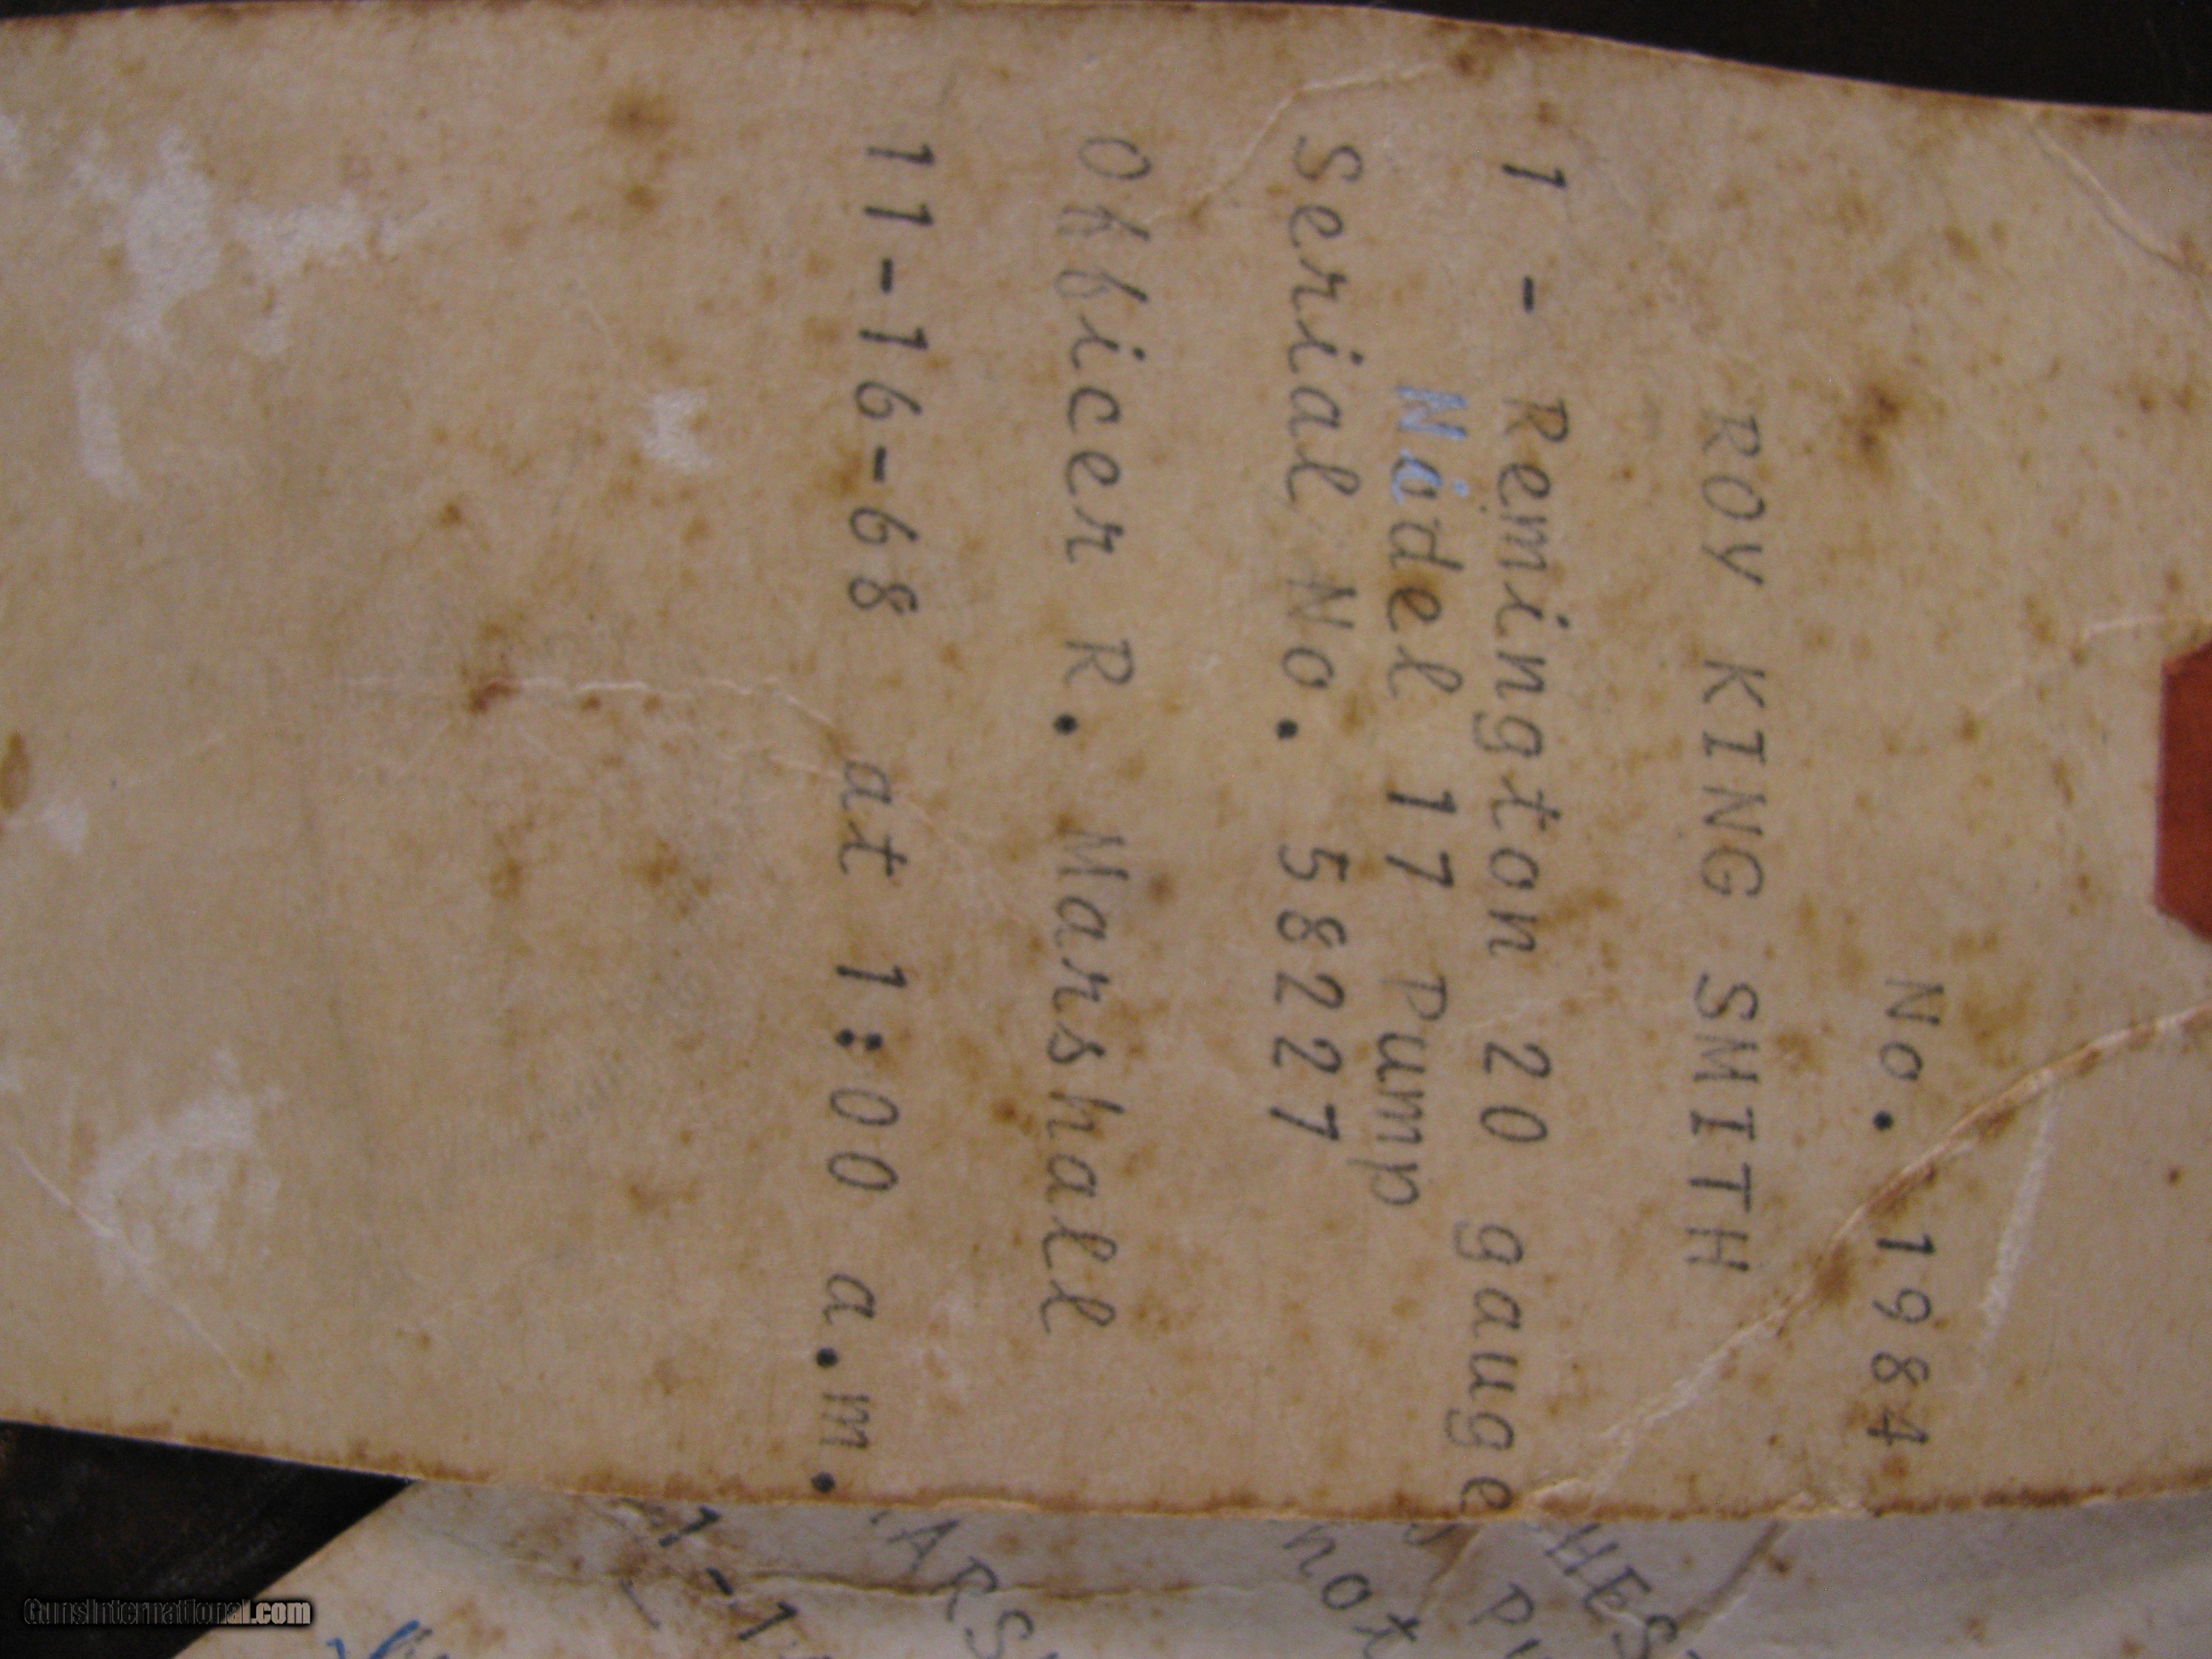 No. 1984
ROY KING SMITH
1 - Remington 20 gauge
Model 17 Pump
Serial No. 58227
Officer R. Marshall
11-16-68 at 1:00 a.m.
GunsInternational.com